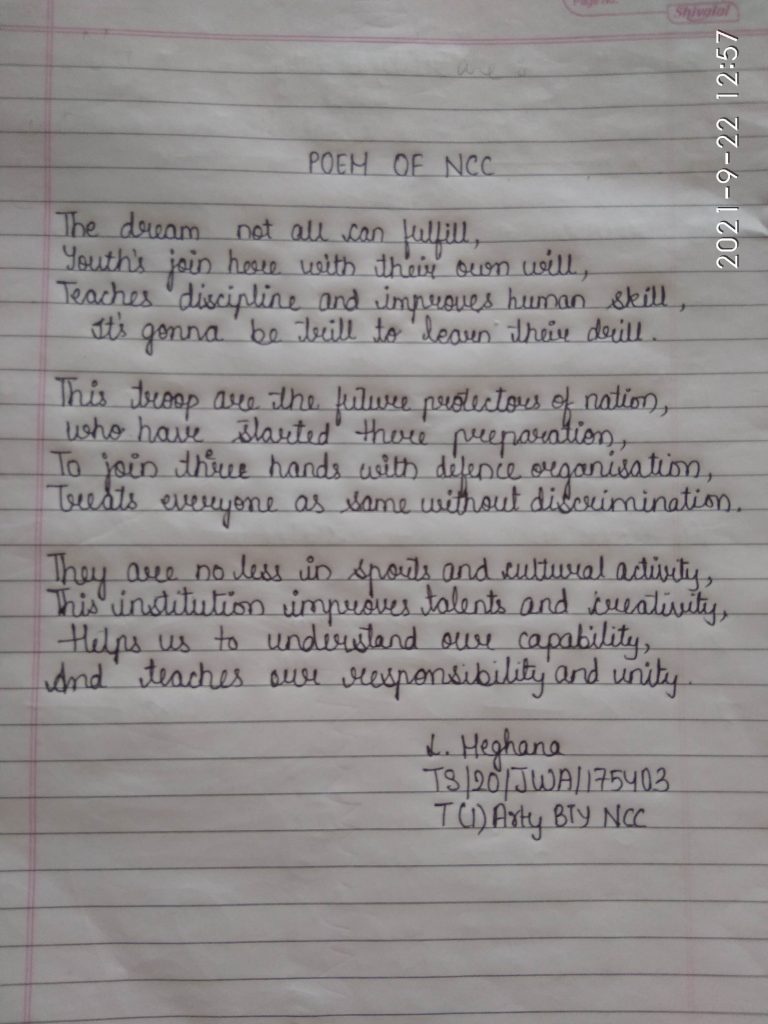 Page No.
Shivalal
2021-9-22 12:57
POEM OF NCC
The dream not all can fulfill,
Youth's join here with their own will,
Teaches discipline and improves human skill,
It's gonna be trill to learn their drill.
This troop are the future protectors of nation,
who have started there preparation,
To join three hands with defence organisation,
Treats everyone as same without discrimination.
They are no less in sports and cultural activity,
This institution improves talents and creativity,
Helps us to understand our capability,
And teaches our responsibility and unity.
L. Meghana
TS/20/JWA/175403
T(1) Arty BTY NCC